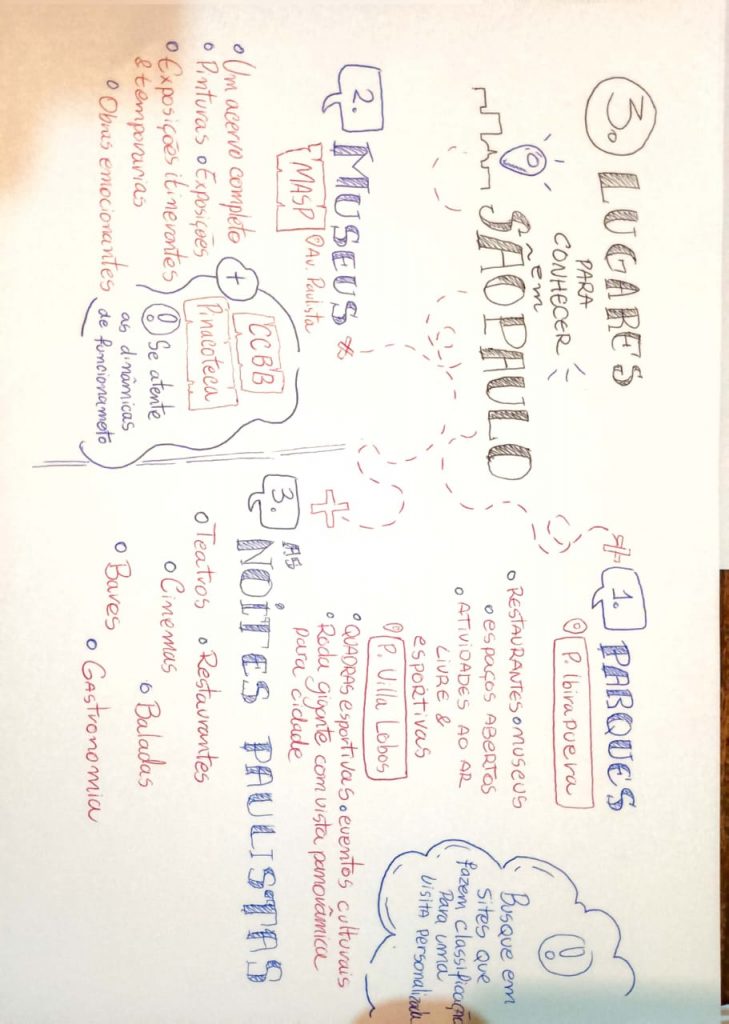 3. LUGARES
PARA
CONHECER
êm
SÃO PAULO
1. PARQUES
P. Ibirapuera
RESTAURANTES MUSEUS
ESPAÇOS ABERTOS
ATIVIDADES AO AR
LIVRE &
esportivas
P. Villa Lobos
QUADRAS esportivas eventos culturais
Roda gigante com vista panorâmica
para cidade
Busque em
Sites que
fazem classificação
Para uma
Visita Personalizada
2. MUSEUS
MASP Av. Paulista
Um acervo completo
Pinturas Exposições
Exposições itinerantes
& temporárias
Obras emocionantes
+
CCBB
Pinacoteca
Se atente
as dinâmicas
de funcionameto
3. AS NOITES PAULISTAS
Teatros Restaurantes
Cinemas Baladas
Bares Gastronomia